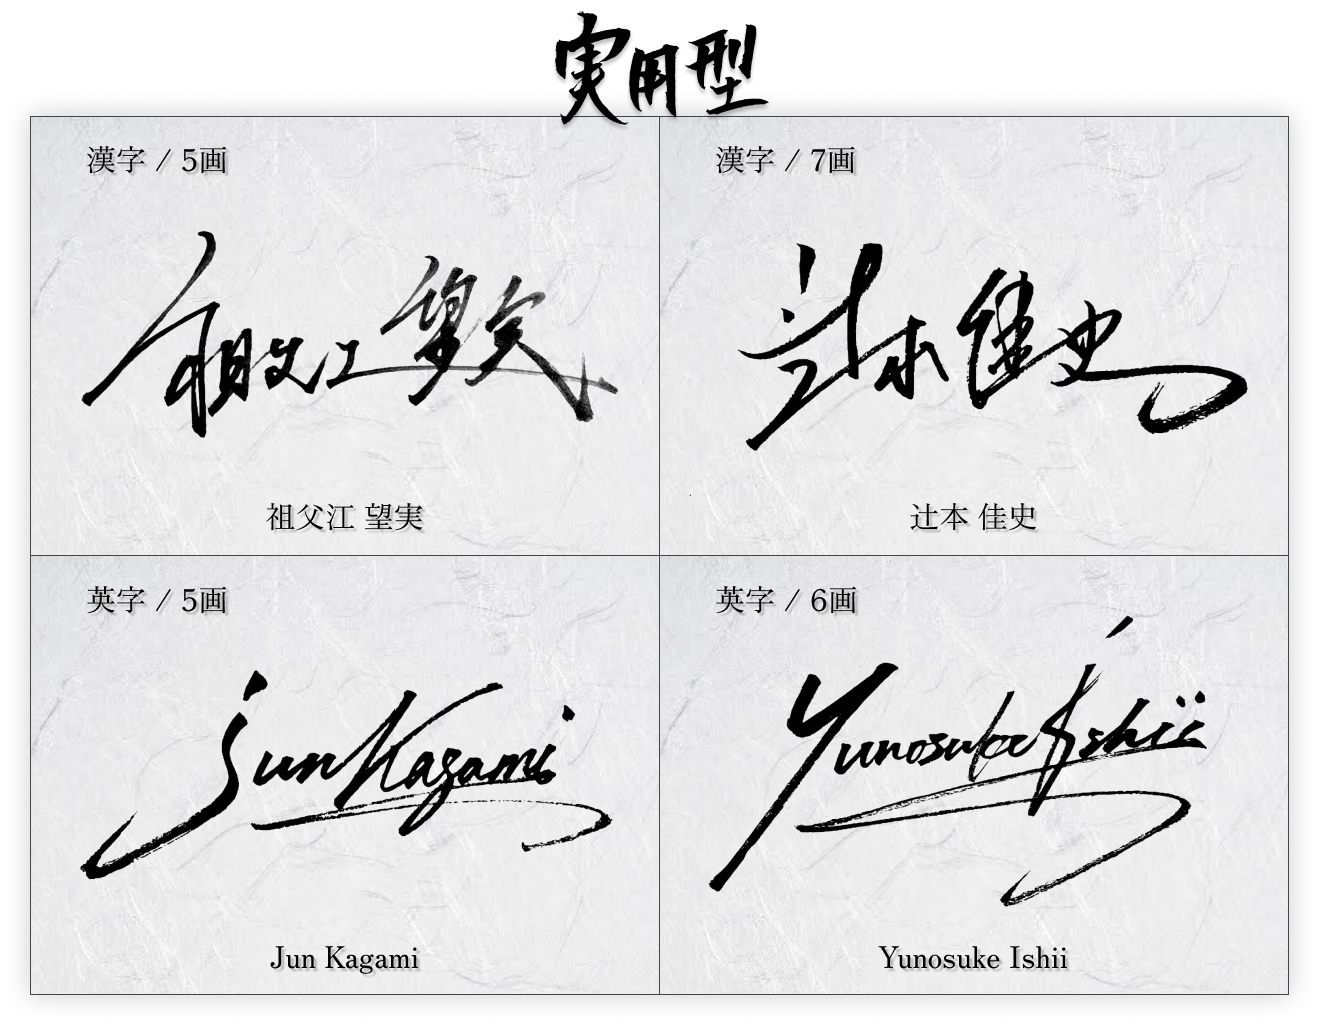 実用型
漢字 / 5画
祖父江 望実
祖父江 望実
漢字 / 7画
辻本 佳史
辻本 佳史
英字 / 5画
Jun Kagami
Jun Kagami
英字 / 6画
Yunosuke Ishii
Yunosuke Ishii